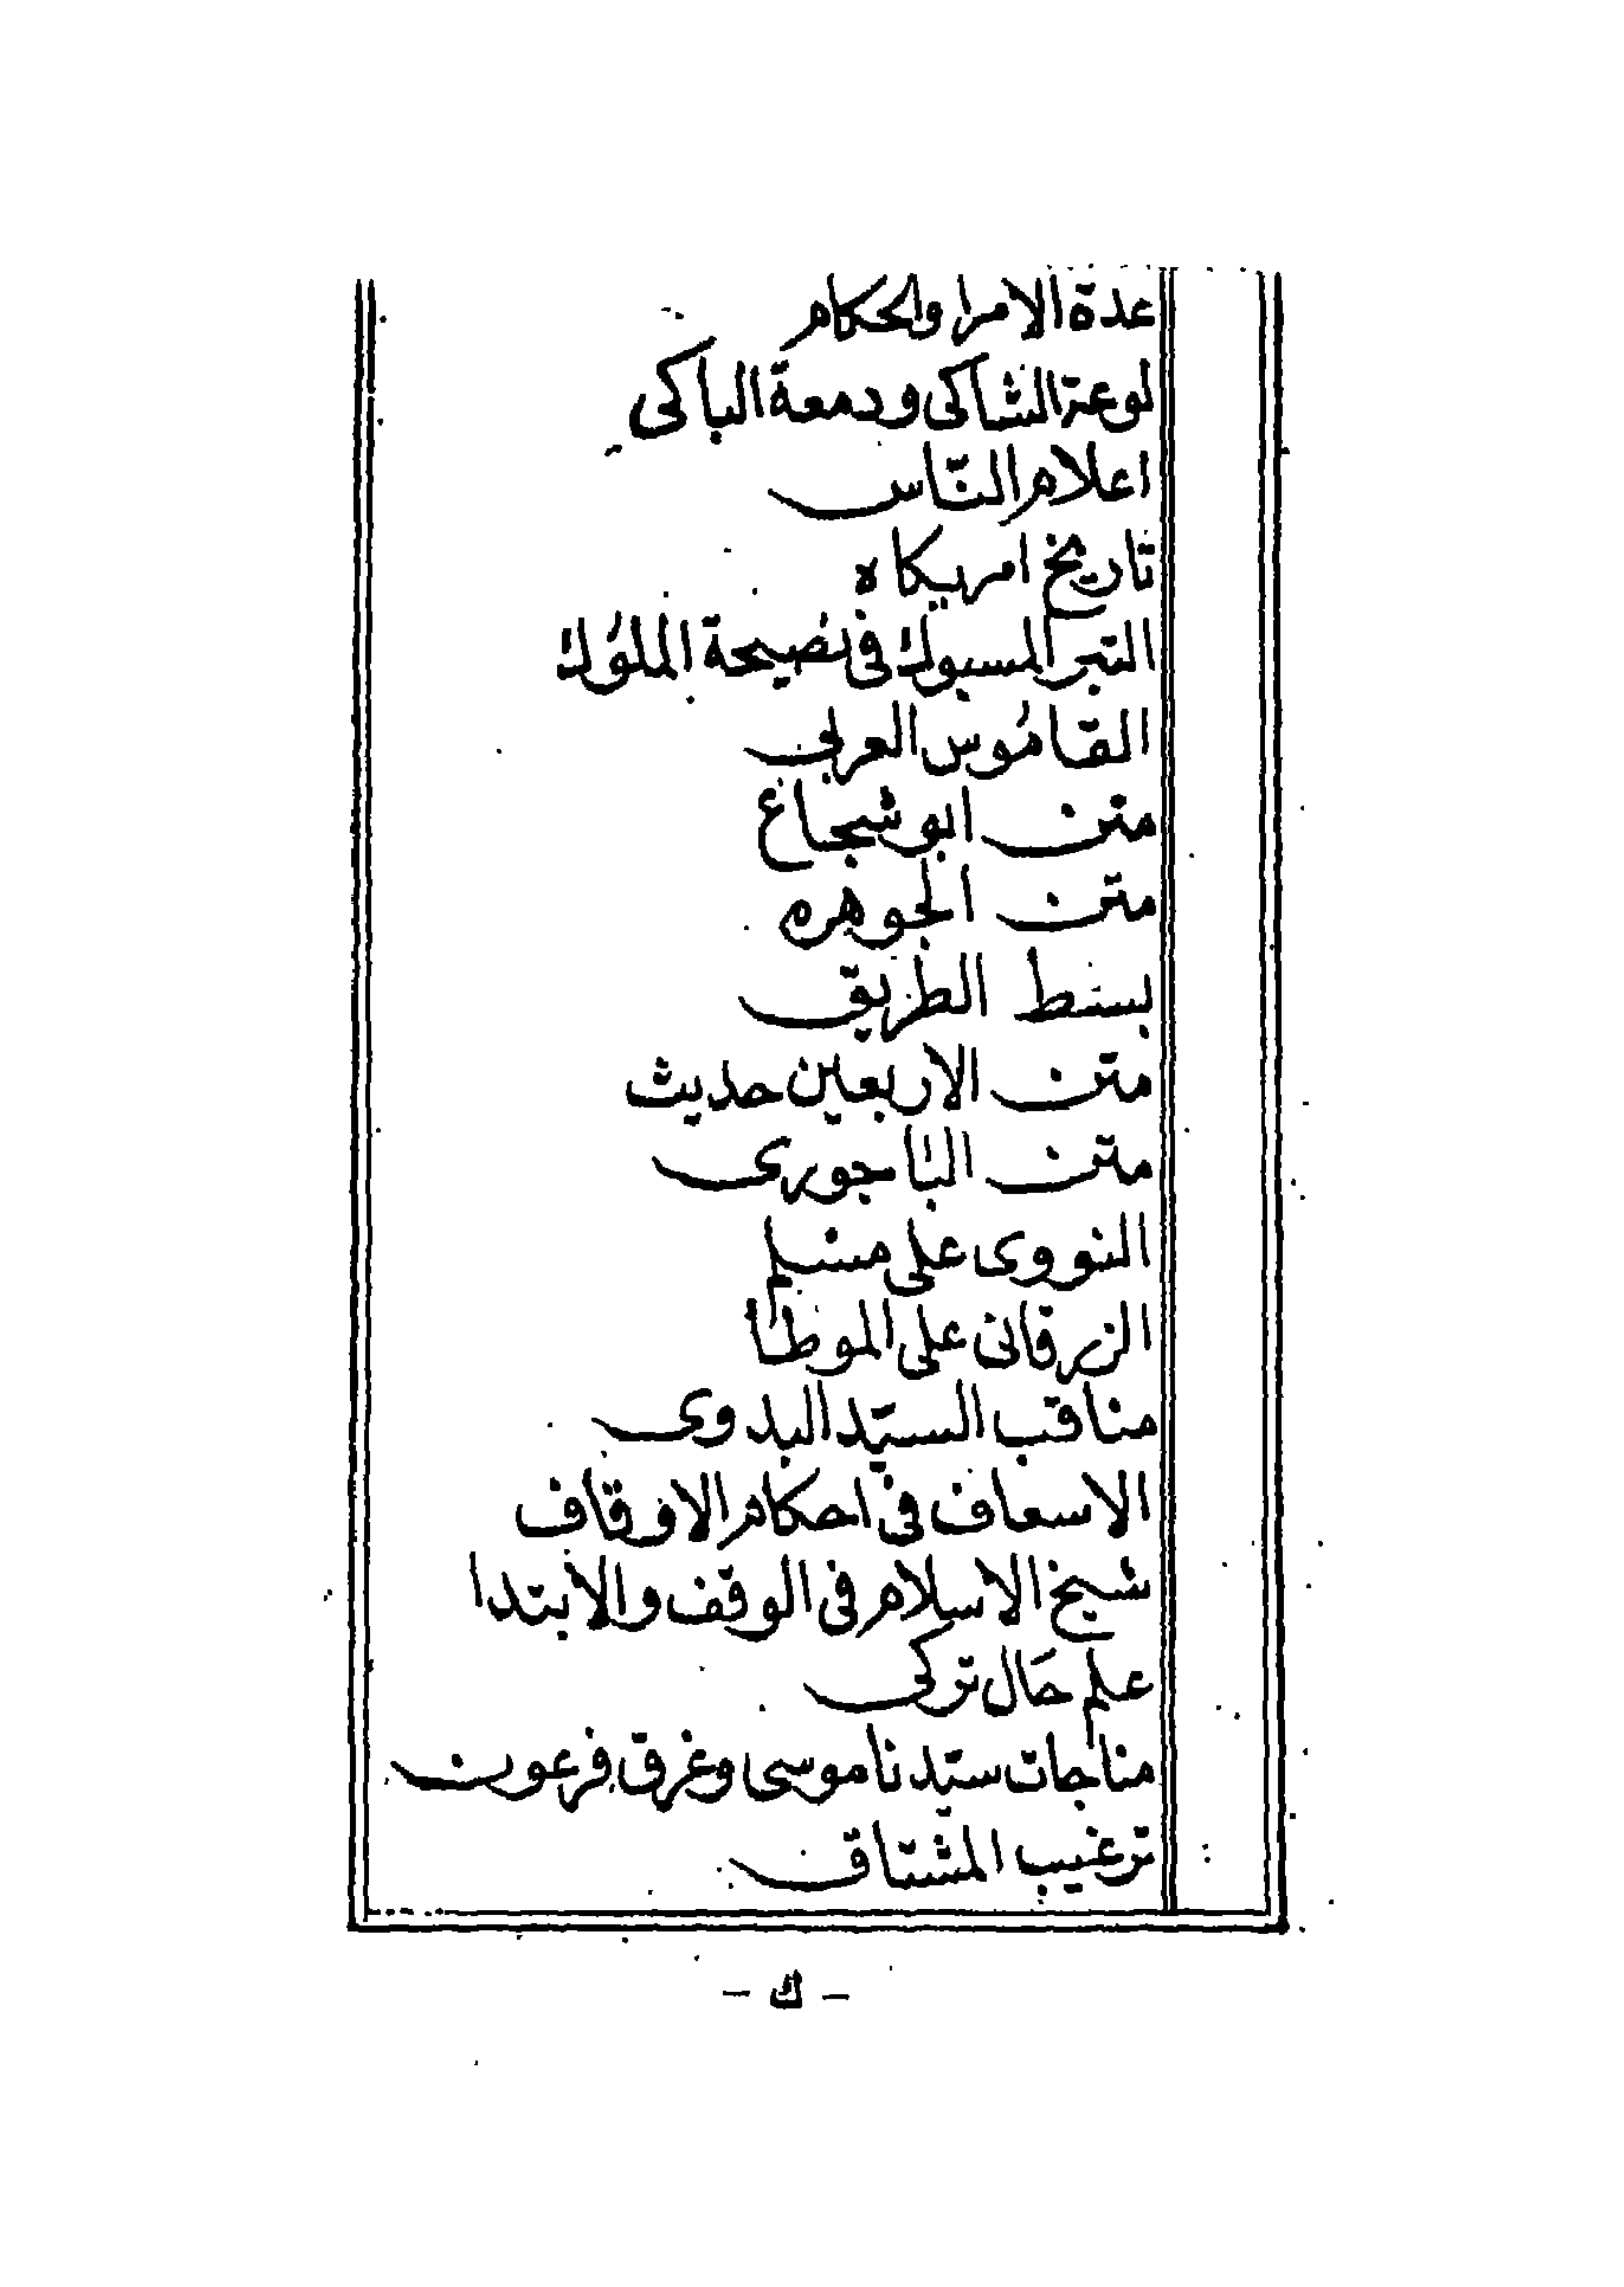 عدة الامرا والحكام
لوعة الشاكى ودمعة الباكى
اعلام النّاس
تاريخ امريكاه
التبر المسبوك فى نصيحة الملوك
القاموس العربى
متن ابو شجاع
متن الجوهره
بسط الطريق
متن الاربعين حديث
متن الباجورى
النووى على مسلم
الزرقانى على الموطا
مناقب السيّد البدوى
الاسعاف فى احكام الاوقاف
شيخ الاسلام فى الوقف والابتدا
علم حَال تركى
مناجات سيّدنا موسى وغرق فرعون
ترغيب المشتاق
- ك -